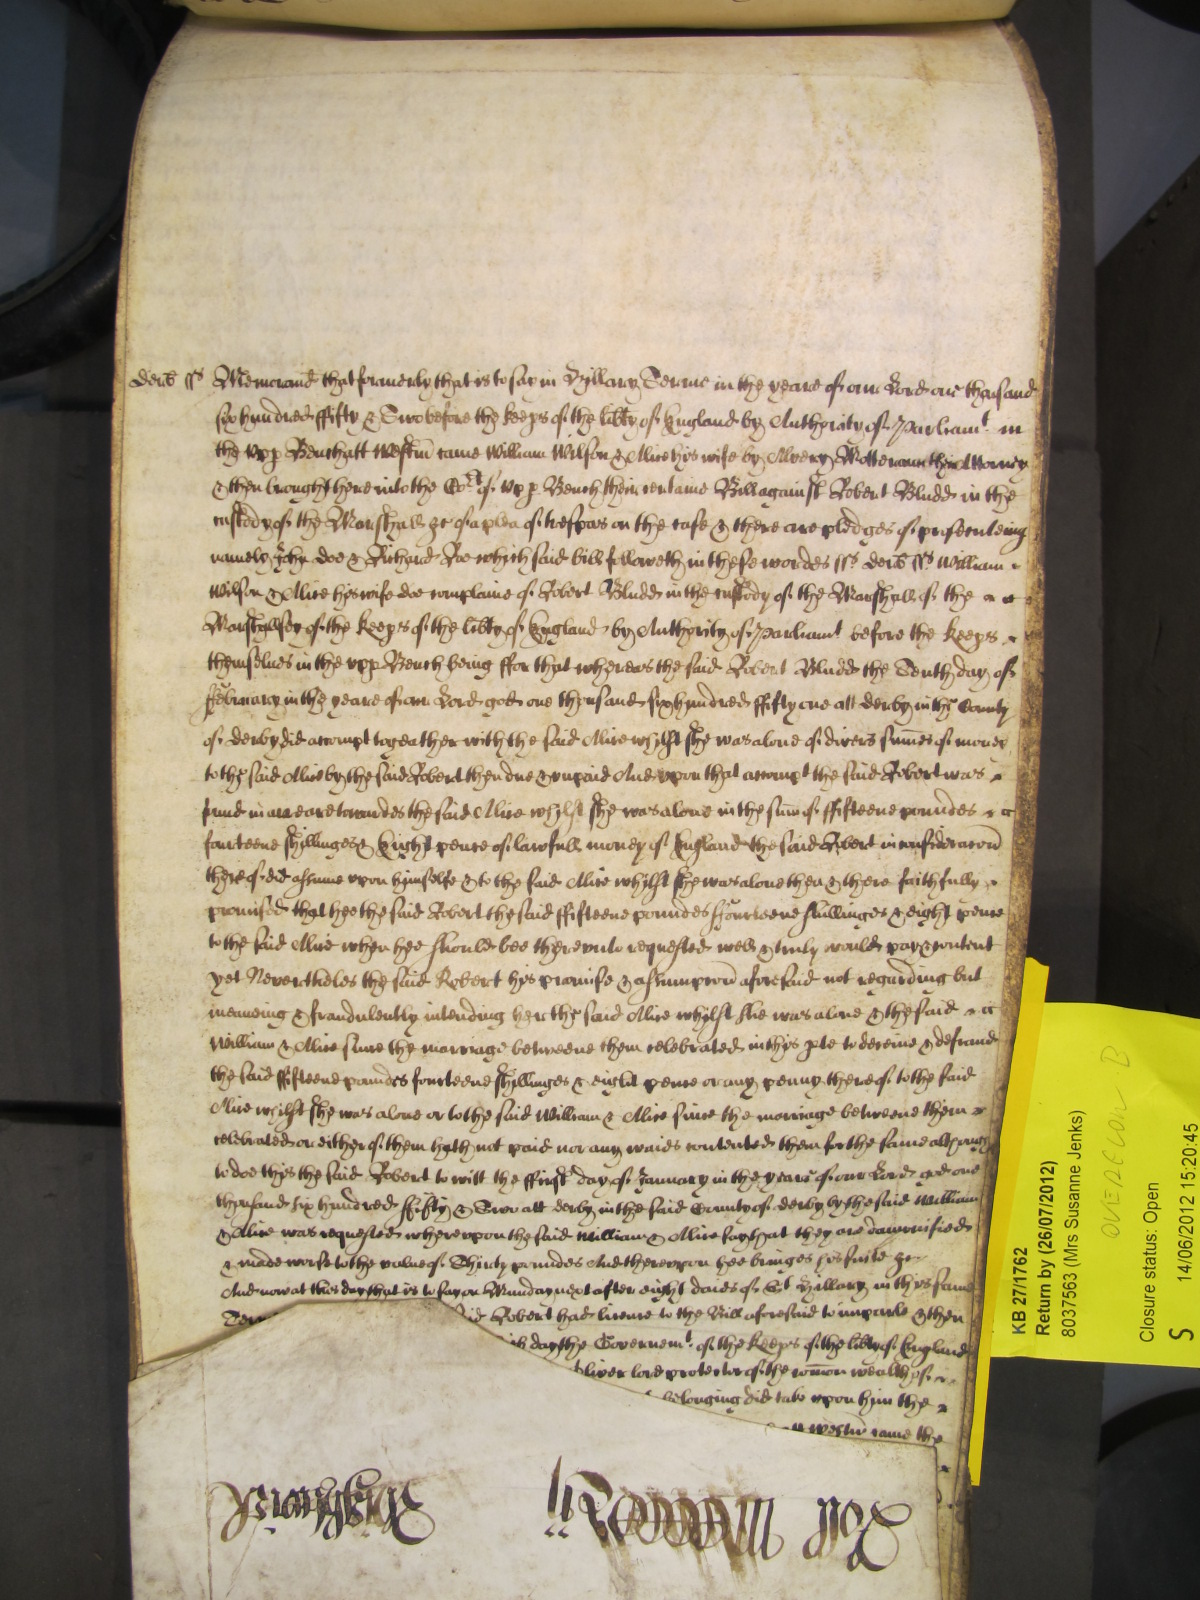 Derb ss Memorand that formerly that is to say in Hillary Terme in the yeare of our Lord one thousand
six hundred ffifty & Two before the keeps of the libty of England by Authority of Parliamt in
the upp Bench att Westm came William Wilson & Alice his wife by Alvery Motteram their Attorney
& then brought here into the Cort of upp Bench their certaine Bill against Robert Bludd in the
custody of the Marshall &c of a plea of trespas on the case & there are pledges of prosecuteing
namely John doe & Richard Roe which said bill followeth in these wordes ss derb ss William
Wilson & Alice his wife doe complaine of Robert Bludd in the custody of the Marshall of the
Marshallsey of the keeps of the libty of England by Authority of Parliamt before the keeps
themselues in the upp Bench being ffor that whereas the said Robert Bludd the Tenth day of
ffebruary in the yeare of our Lord god one thousand six hundred ffifty one att derby in the County
of derby did accompt togeather with the said Alice whilst she was alone of divers summes of money
to the said Alice by the said Robert then due & unpaid And upon that accompt the said Robert was
found in arreare towardes the said Alice whilst she was alone in the sum of ffifteene poundes
fourteene shillinges & Eight pence of lawfull money of England the said Robert in consideracon
thereof did assume upon himselfe & to the said Alice whilst she was alone then & there faithfully
promised that hee the said Robert the said ffifteene poundes fourteene shillinges & eight pence
to the said Alice when hee should bee thereunto requested well & truly would pay & content
yet Nevertheles the said Robert his promise & assumpcon aforesaid not regarding but
meaneing & fraudulently intending her the said Alice whilst she was alone & the said
William & Alice since the marriage betweene them celebrated in this pte to deceive & defraud
the said ffifteene poundes fourteene shillinges & eight pence or any penny thereof to the said
Alice whilst she was alone or to the said William & Alice since the marriage betweene them
celebrated or either of them hath not paid nor any waies contented them for the same although
to doe this the said Robert to witt the ffirst day of January in the yeare of our Lord god one
thousand six hundred ffifty & Two att derby in the said County of derby by the said William
& Alice was requested whereupon the said William & Alice say that they are damnified
& made worse to the value of Thirty poundes And thereupon hee bringes his suite &c
And now at this day that is to say on Munday next after eight daies of St Hillary in this same
Robert had licence to the Bill aforesaid to imparle & then
day the Governemt of the keeps of the libty of England
Oliver lord protector of the common wealth of
belonging did take upon him the
att Westm came the
Roll
KB 27/1762
Return by (26/07/2012)
8037563 (Mrs Susanne Jenks)
OVERSEON B
Closure status: Open
S 14/06/2012 15:20:45